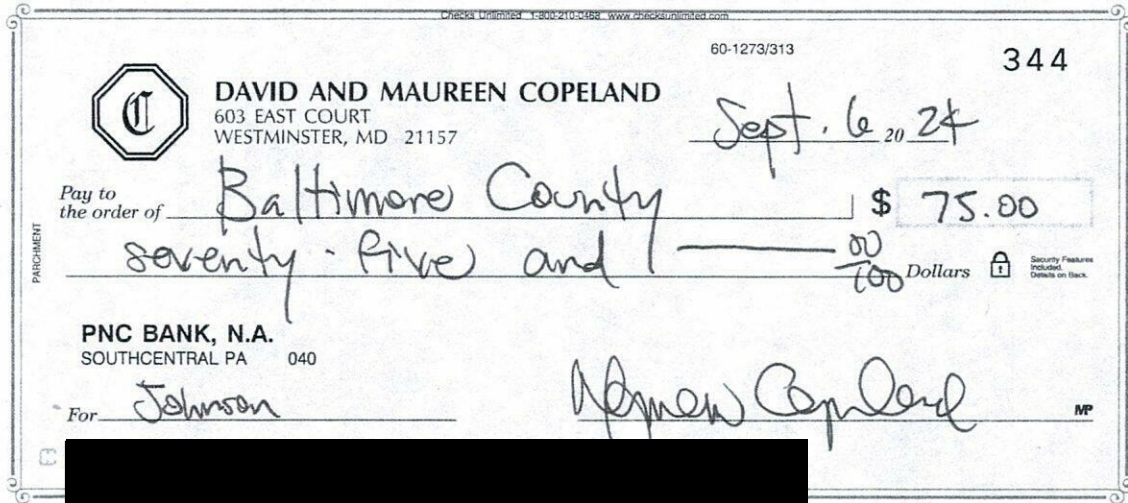 Checks Unlimited 1-800-210-0468 www.checksunlimited.com
60-1273/313
344
C
DAVID AND MAUREEN COPELAND
603 EAST COURT
WESTMINSTER, MD 21157
Sept. 6 20 24
Pay to
the order of Baltimore County $ 75.00
seventy-five and 00/100 Dollars
Security Features
Included.
Details on Back.
PARCHMENT
PNC BANK, N.A.
SOUTHCENTRAL PA 040
For Johnson
Copeland
MP